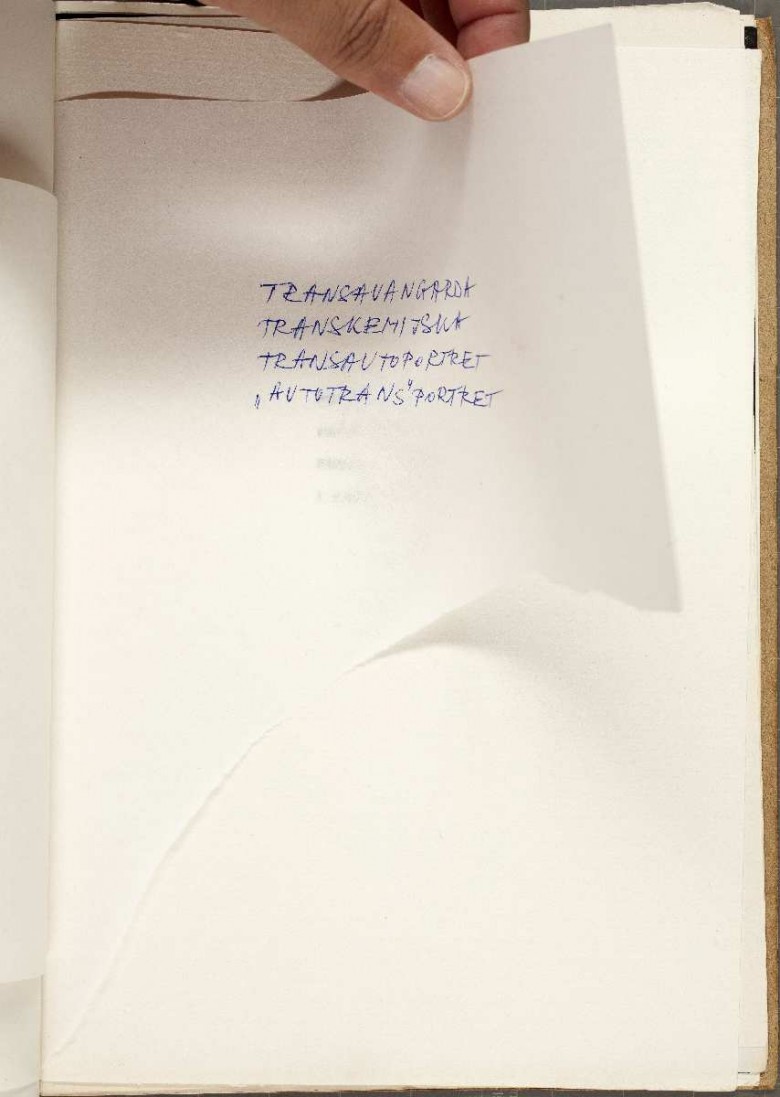 TRANSAVANGARDA
TRANSKEMIJSKA
TRANSAUTOPORTRET
„AUTOTRANS"PORTRET